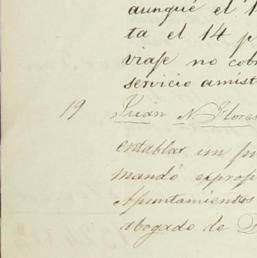 aunqué el 1
ta el 14 p
viaje no cob
servicio amist
19 Juan N. Flores
entablar un po
mandó exprop
Apuntamientos
abogado de